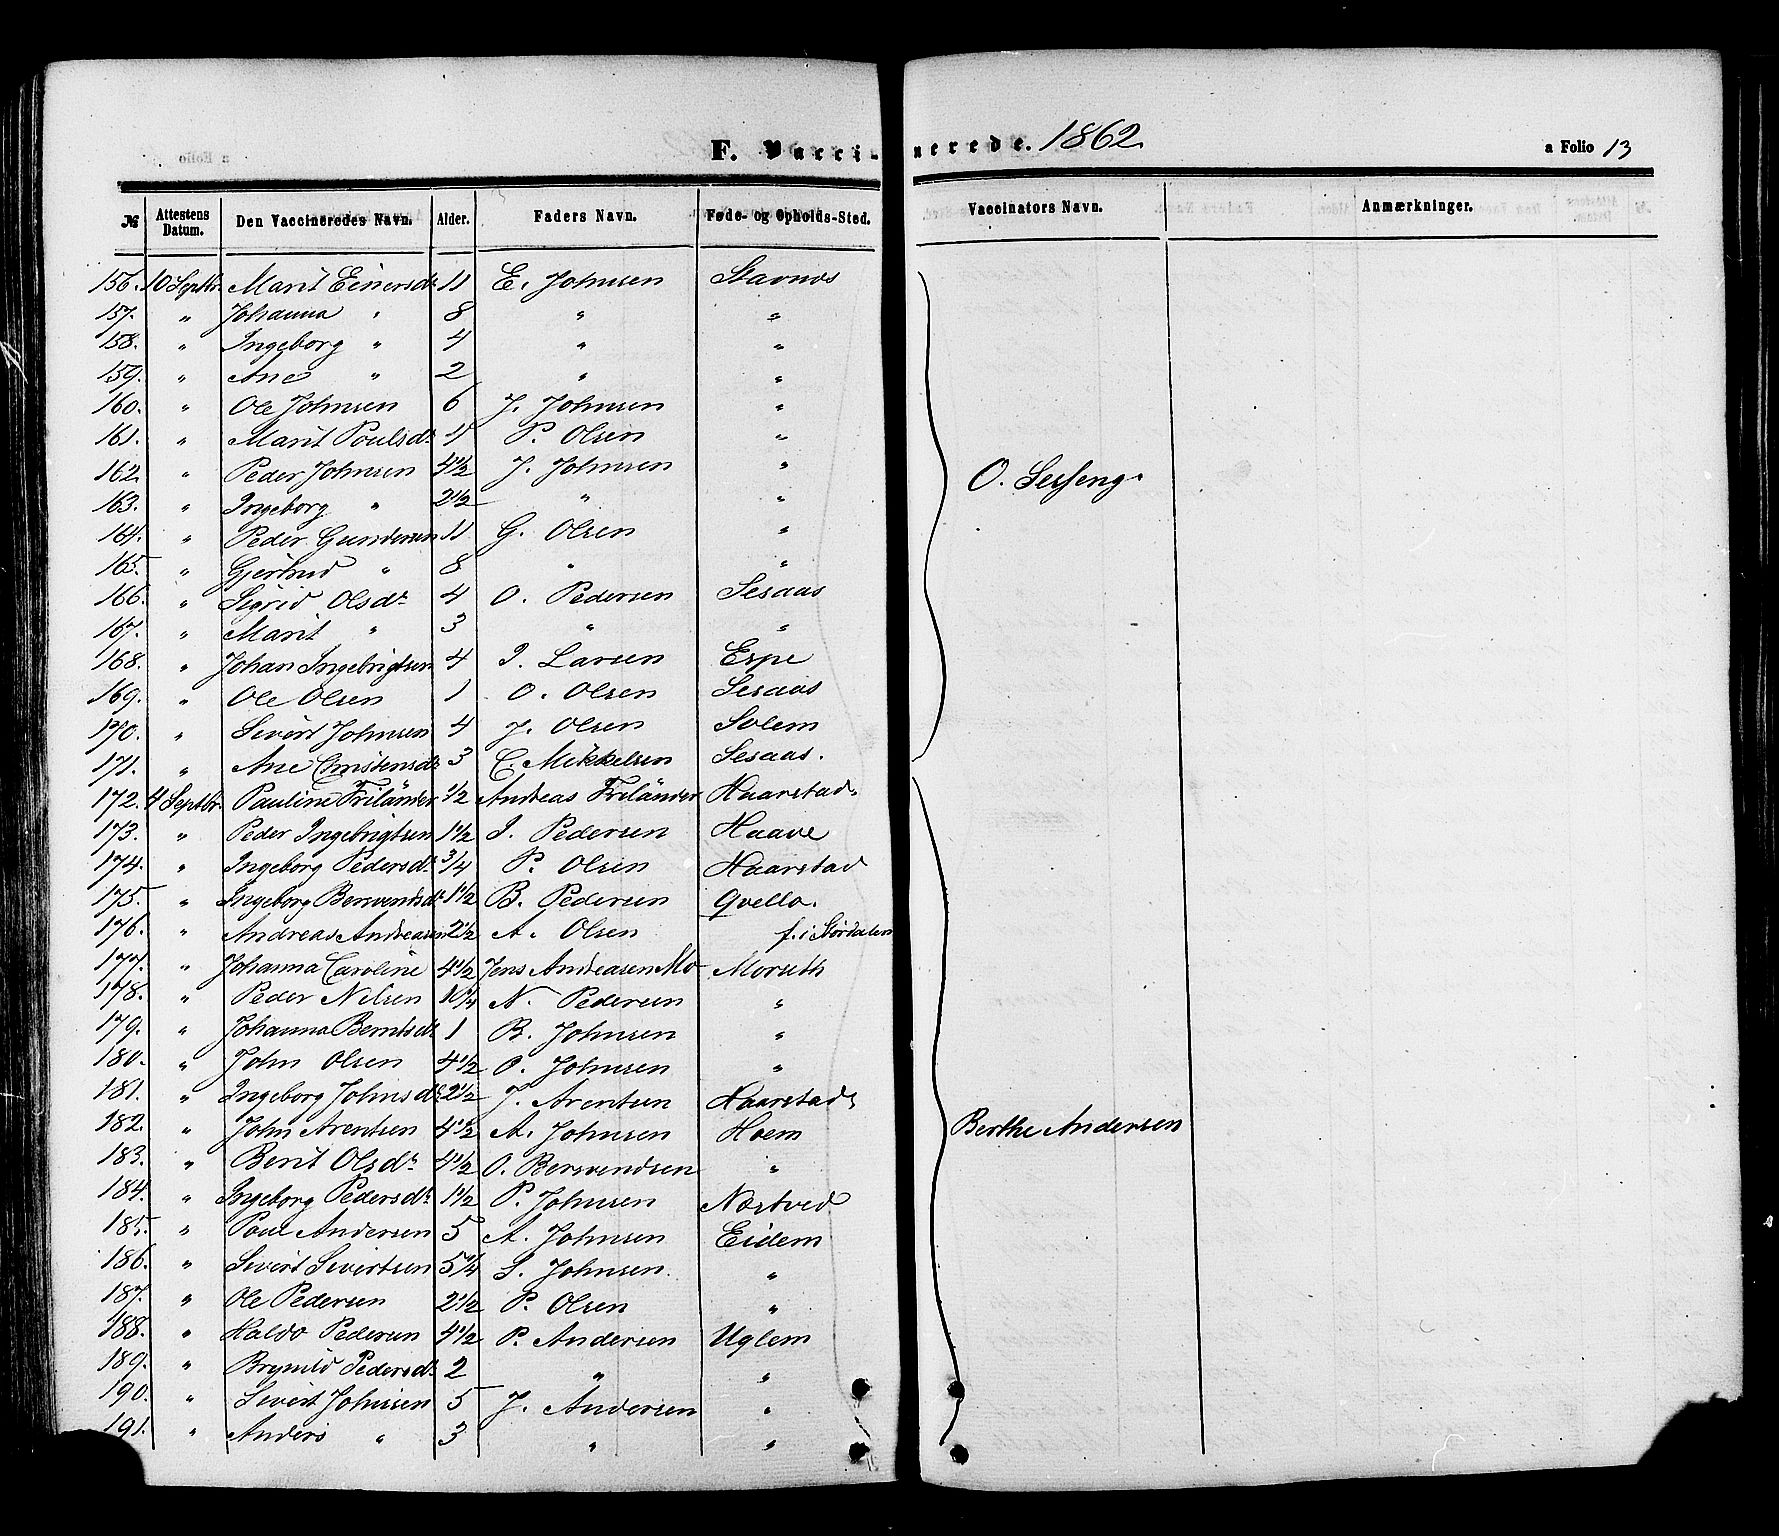 F. Vaccinerede. 1862. a Folio 13
№ Attestens Datum. Den Vaccineredes Navn. Alder. Faders Navn. Føde- og Opholds-Sted. Vaccinators Navn. Anmærkninger.
156. 10 Septbr. Marit Einersdr 11 E. Johnsen Stavnes
157. " Johanna " 8 " "
158. " Ingeborg " 4 " "
159. " Ane " 2 " "
160. " Ole Johnsen 6 J. Johnsen "
161. " Marit Poulsdr P. Olsen "
162. " Peder Johnsen 4 1/2 J. Johnsen "
O. Sesseng.
163. " Ingeborg " 2 1/2 " "
164. " Peder Gundersen 11 G. Olsen "
165. " Gjertrud " 8 " "
166. " Sigrid Olsdr 4 O. Pedersen Sesaas
167. " Marit " 3 " "
168. " Johan Ingebrigtsen 4 I. Larsen Espe
169. " Ole Olsen 1 O. Olsen Sesaas
170. " Sivert Johnsen 4 J. Olsen Solem
171. " Ane Christensdr 3 C. Mikkelsen Sesaas.
172. 4 Septbr. Pauline Friländer 1/2 Andreas Friländer Haarstad
173. " Peder Ingebrigtsen 1 1/2 I. Pedersen Haave
174. " Ingeborg Pedersdr 3/4 P. Olsen Haarstad
175. " Ingeborg Bersvendsdr 1 1/2 B. Pedersen Qvello.
176. " Andreas Andreasen 2 1/2 A. Olsen f. i Størdalen
177. " Johanna Caroline 4 1/2 Jens Andreasen Mo Moruth
178. " Peder Nelsen 10 1/4 N. Pedersen "
179. " Johanna Berntsdr 1 B. Johnsen "
180. " John Olsen 4 1/2 O. Johnsen "
181. " Ingeborg Johnsdr 2 1/2 J. Arentsen Haarstad
182. " John Arentsen 4 1/2 A. Johnsen Hoem
Berthe Andersen
183. " Berit Olsdr 4 1/2 O. Bersvendsen "
184. " Ingeborg Pedersdr 1 1/2 P. Johnsen Næstved
185. " Poul Andersen 5 A. Johnsen Eidem
186. " Sivert Sivertsen 5 1/4 S. Johnsen. "
187. " Ole Pedersen 2 1/2 P. Olsen "
188. " Haldo Pedersen 4 1/2 P. Andersen Uglem
189. " Brynild Pedersdr 2 " "
190. " Sivert Johnsen 5 J. Andersen "
191. " Anders " 3 " "